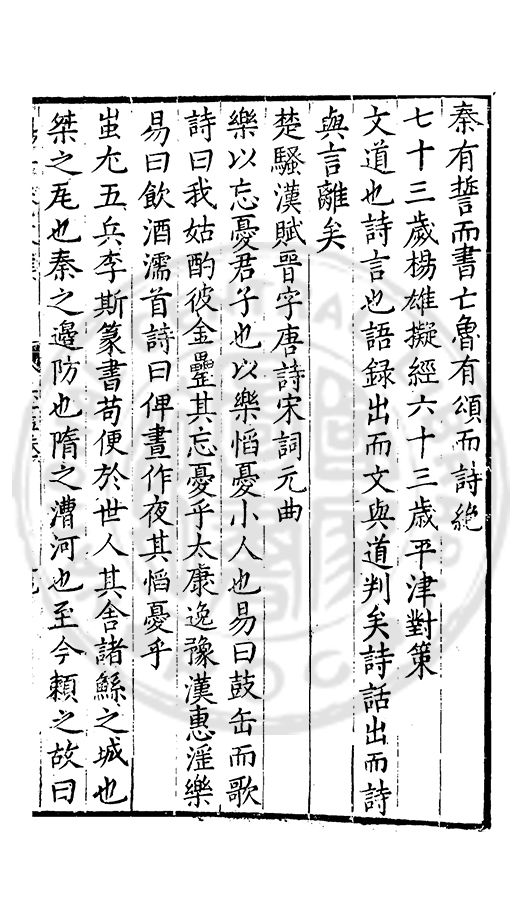 秦有誓而書亡魯有頌而詩絶
七十三歲楊雄擬經六十三歲平津對策
文道也詩言也語録出而文與道判矣詩話出而詩
與言離矣
楚騷漢賦晉字唐詩宋詞元曲
樂以忘憂君子也以樂慆憂小人也易曰鼓缶而歌
詩曰我姑酌彼金罍其忘憂乎太康逸豫漢惠滛樂
易曰飲酒濡首詩曰俾晝作夜其慆憂乎
蚩尤五兵李斯篆書苟便於世人其舎諸鯀之城也
桀之瓦也秦之邉防也隋之漕河也至今頼之故曰